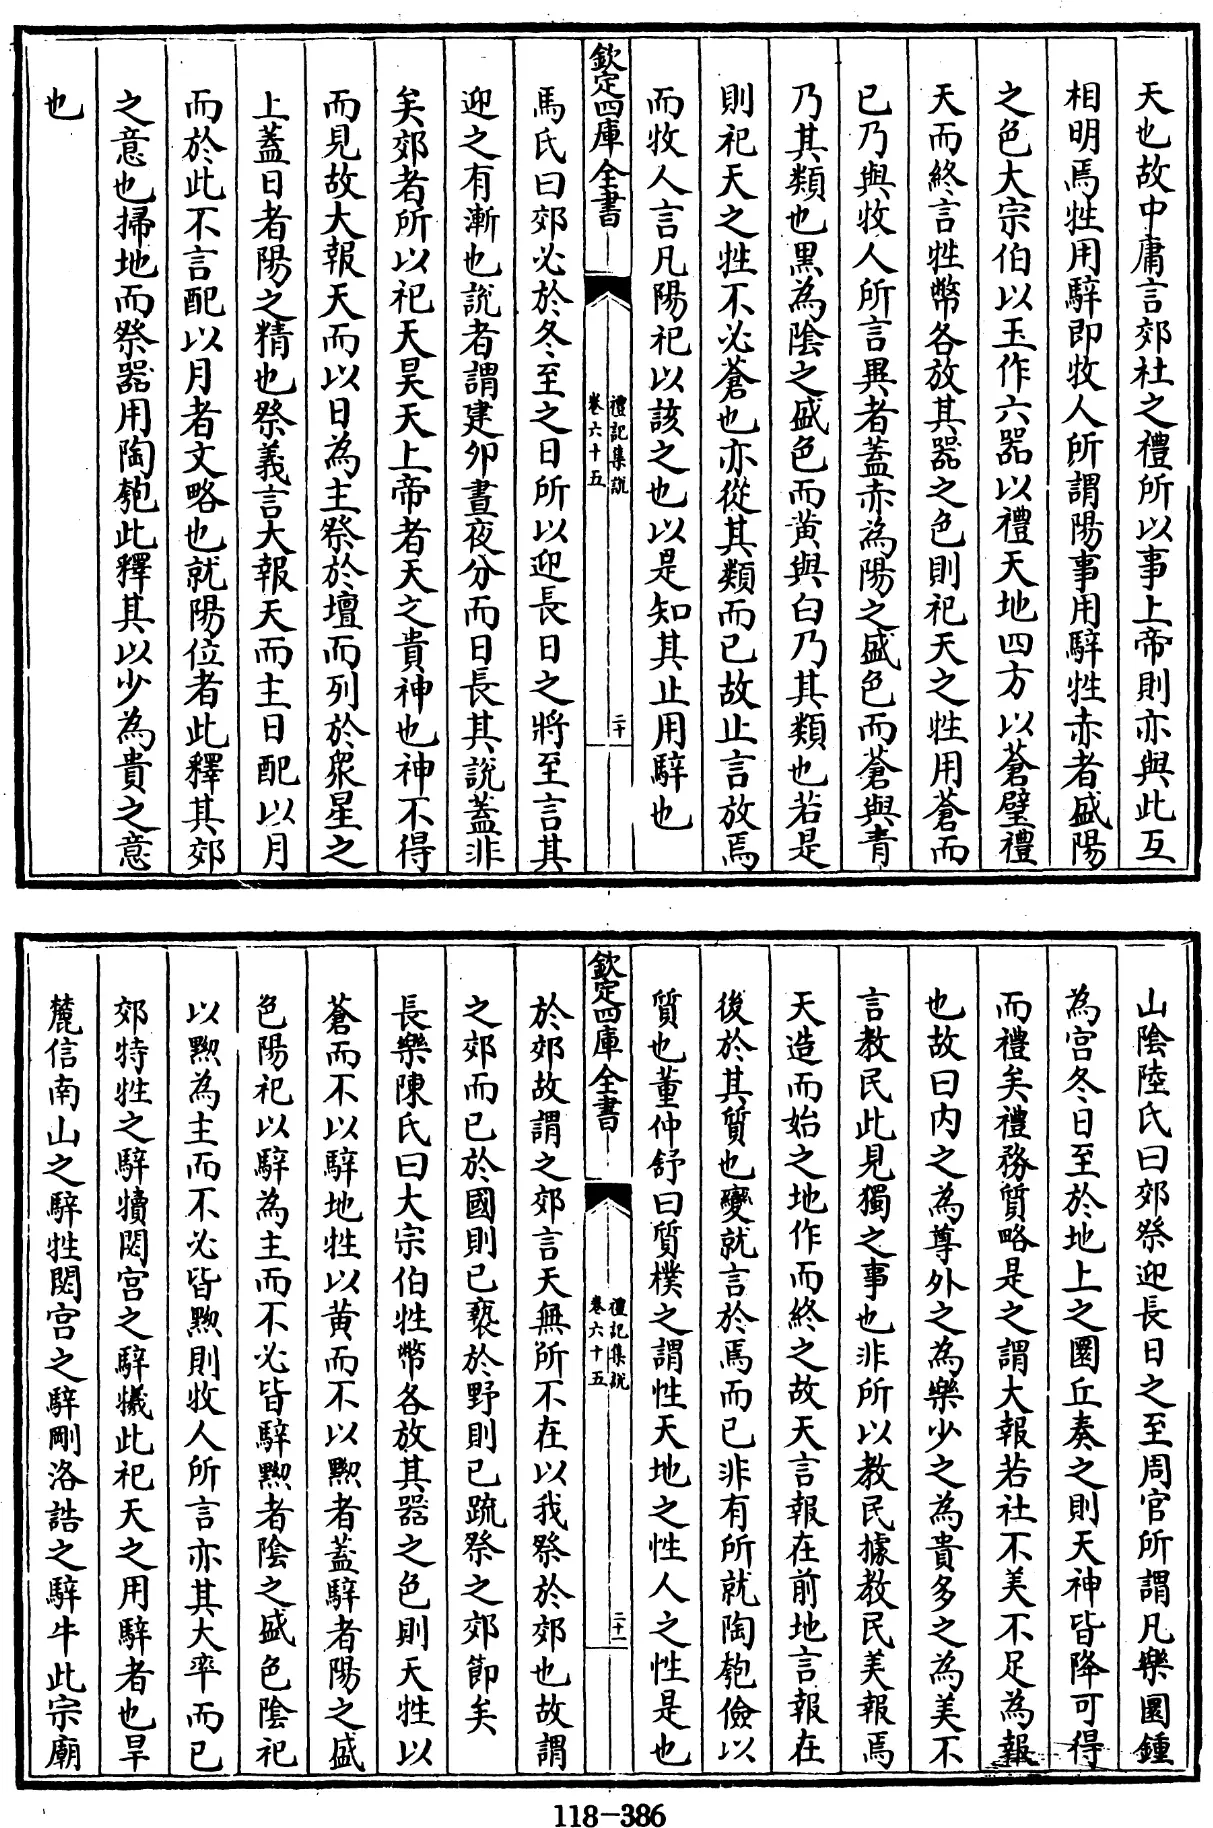 天也故中庸言郊社之禮所以事上帝則亦與此互
相明焉牲用騂即牧人所謂陽事用騂牲赤者盛陽
之色大宗伯以玉作六器以禮天地四方以蒼璧禮
天而終言牲幣各放其器之色則祀天之牲用蒼而
已乃與牧人所言異者蓋赤為陽之盛色而蒼與青
乃其類也黑為陰之盛色而黄與白乃其類也若是
則祀天之牲不必蒼也亦從其類而已故止言放焉
而牧人言凡陽祀以該之也以是知其止用騂也
欽定四庫全書
禮記集說
卷六十五
二十
馬氏曰郊必於冬至之日所以迎長日之將至言其
迎之有漸也説者謂建卯晝夜分而日長其説蓋非
矣郊者所以祀天昊天上帝者天之貴神也神不得
而見故大報天而以日為主祭於壇而列於衆星之
上蓋日者陽之精也祭義言大報天而主日配以月
而於此不言配以月者文略也就陽位者此釋其郊
之意也掃地而祭器用陶匏此釋其以少為貴之意
也
山陰陸氏曰郊祭迎長日之至周官所謂凡樂圜鍾
為宮冬日至於地上之圜丘奏之則天神皆降可得
而禮矣禮務質略是之謂大報若社不美不足為報
也故曰内之為尊外之為樂少之為貴多之為美不
言教民此見獨之事也非所以教民據教民美報焉
天造而始之地作而終之故天言報在前地言報在
後於其質也變就言於焉而已非有所就陶匏儉以
質也董仲舒曰質樸之謂性天地之性人之性是也
欽定四庫全書
禮記集說
卷六十五
二十一
於郊故謂之郊言天無所不在以我祭於郊也故謂
之郊而已於國則已褻於野則已疏祭之郊節矣
長樂陳氏曰大宗伯牲幣各放其器之色則天牲以
蒼而不以騂地牲以黄而不以黝者蓋騂者陽之盛
色陽祀以騂為主而不必皆騂黝者陰之盛色陰祀
以黝為主而不必皆黝則牧人所言亦其大率而已
郊特牲之騂犢閟宮之騂犧此祀天之用騂者也旱
麓信南山之騂牲閟宮之騂剛洛誥之騂牛此宗廟
118-386